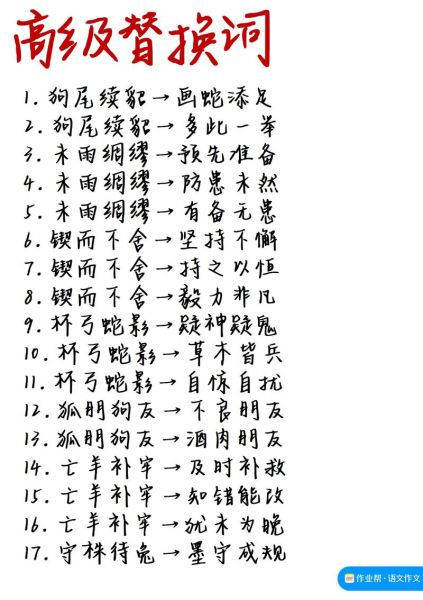 高级替换词
1. 狗尾续貂→画蛇添足
2. 狗尾续貂→多此一举
3. 未雨绸缪→预先准备
4. 未雨绸缪→防患未然
5. 未雨绸缪→有备无患
6. 锲而不舍→坚持不懈
7. 锲而不舍→持之以恒
8. 锲而不舍→毅力非凡
9. 杯弓蛇影→疑神疑鬼
10. 杯弓蛇影→草木皆兵
11. 杯弓蛇影→自惊自扰
12. 狐朋狗友→不良朋友
13. 狐朋狗友→酒肉朋友
14. 亡羊补牢→及时补救
15. 亡羊补牢→知错能改
16. 亡羊补牢→犹未为晚
17. 守株待兔→墨守成规
作业帮·语文作文